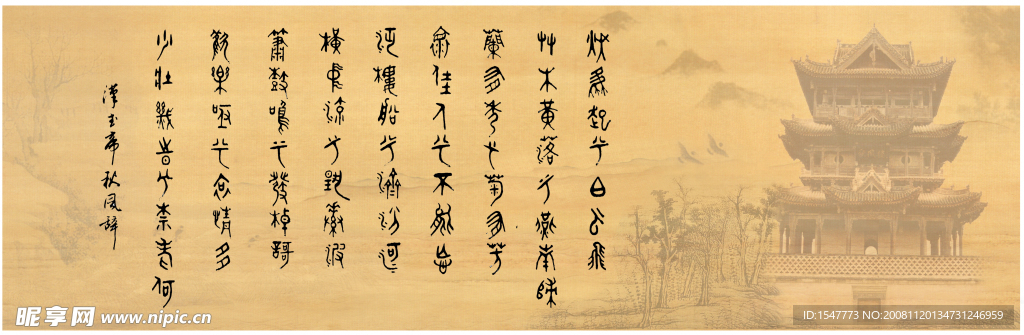 秋風起兮白云飛
艸木黃落兮雁南歸
蘭有秀兮菊有芳
佳人兮不能忘
泛樓船兮濟汾河
橫中流兮揚素波
簫鼓鳴兮發棹謌
歡樂極兮哀情多
少壯幾時兮奈老何
漢武帝秋風辭
昵享网 www.nipic.cn
ID:1547773 NO:20081120134731246959